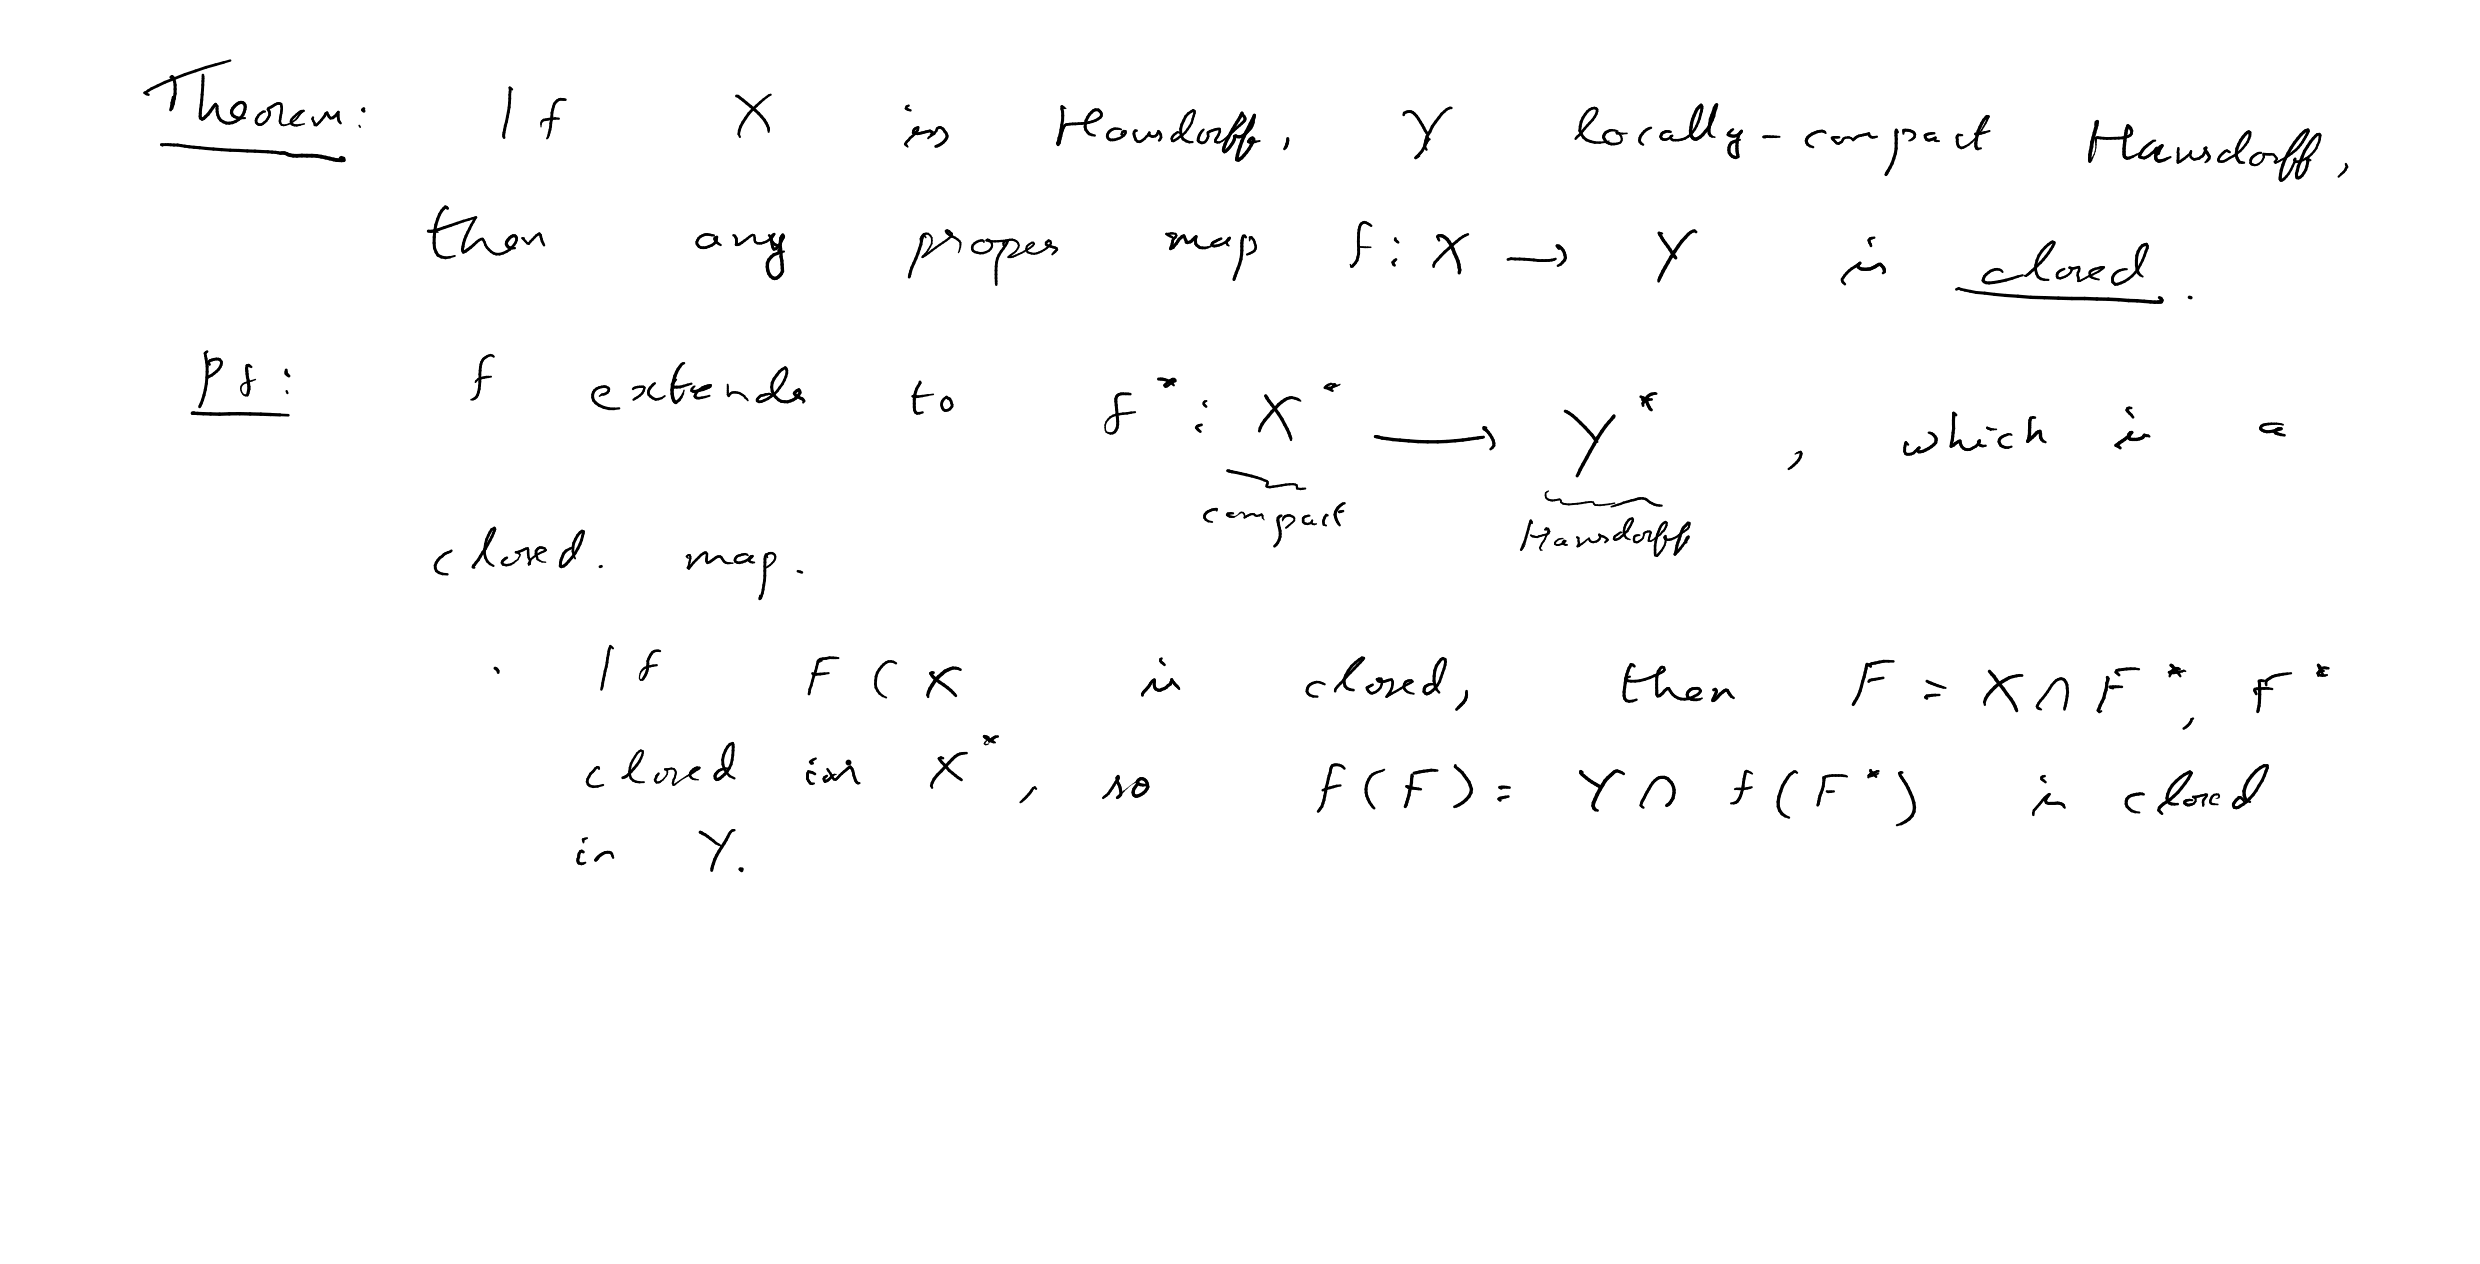 Theorem: If X is Hausdorff, Y locally-compact Hausdorff,
then any proper map f: X → Y is closed.
Pf: f extends to f*: X* → Y*, which is a
compact Hausdorff
closed. map.
· If F ⊂ X is closed, then F = X ∩ F*, F*
closed in X*, so f(F) = Y ∩ f(F*) is closed
in Y.